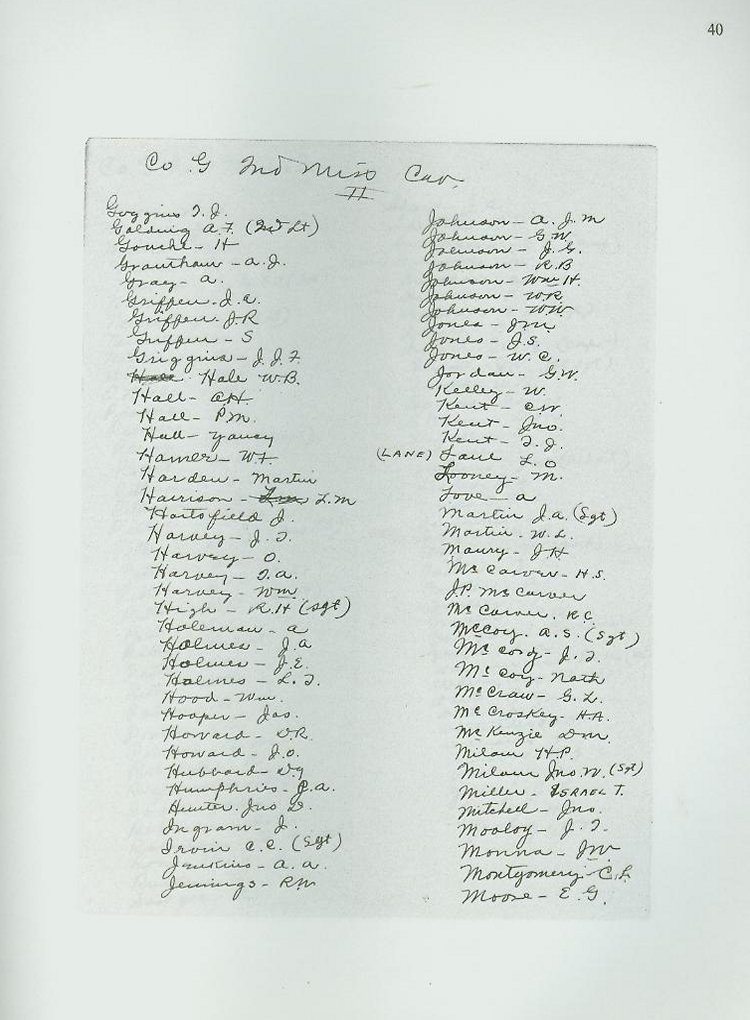 40
Co G 2nd Miss Cav.
II
Goggins T. J.
Golding A. F. (2nd Lt)
Gouche - H
Granthaw - A. J.
Gray - A.
Griffen - J. A.
Griffen - J. R
Griffen - S
Griggins - J. J. F.
Hale W. B.
Hall - AH
Hall - P. M.
Hall - Yancy
Hamer - W. F.
Harden - Martin
Harrison - L. M
Hartsfield J.
Harvey - J. T.
Harvey - O.
Harvey - T. A.
Harvey - Wm
High - R. H (Sgt)
Holeman - A
Holmes - J. A
Holmes - J. E.
Holmes - L. T.
Hood - Wm.
Hooper - Jas.
Howard - D. R.
Howard - J. O.
Hubbard - D y
Humphries - P. A.
Hunter. Jno D.
Ingram - J.
Irvin C. C. (Sgt)
Jenkins - A. A.
Jennings - R M
Johnson - A. J. M
Johnson - G. W
Johnson - J. G.
Johnson - R. B
Johnson - Wm H.
Johnson - W. R.
Johnson - W W
Jones - J M
Jones - J. S.
Jones - W. C.
Jordan - G. W.
Kelley - W.
Kent - C W.
Kent - Jno.
Kent - T. J.
(LANE) Lane L. O
Looney - M.
Love - A
Martin J. A. (Sgt)
Martin. W. L.
Maury - J H
Mc Carver - H. S.
J. P. Mc Carver
Mc Carver. R C.
McCoy. A. S. (Sgt)
Mc Cory - J. T.
Mc Coy - Nath
Mc Craw - G. L.
Mc Croskey - H. A.
Mc Kenzie D M.
Milam H. P.
Milam Jno. W. (Sgt)
Miller - ISRAEL T.
Mitchell - Jno.
Mooloy - J. T.
Monna - J W
Montgomery - C. L
Moose - E. G.